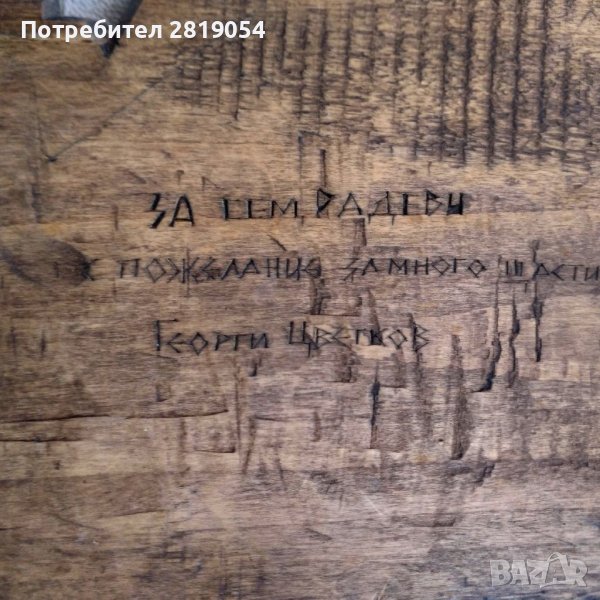 Потребител 2819054
ЗА СЕМ. РАДЕВИ
С ПОЖЕЛАНИЕ ЗА МНОГО ЩАСТИ
ГЕОРГИ ЦВЕТКОВ
BAZAR